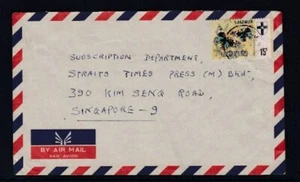 SUBSCRIPTION DEPARTMENT,
STRAITS TIMES PRESS (M) BHD.
390 KIM SENG ROAD,
SINGAPORE - 9
15¢
BY AIR MAIL
PAR AVION